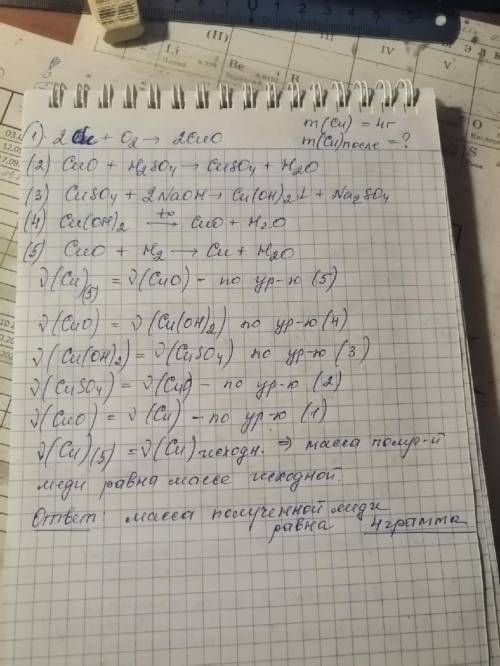 (H)
III
IV
V
Li
Be
B
m(Cu) = 4г
(1) 2Cu + O₂ → 2CuO
m(Cu)после = ?
(2) CuO + H₂SO₄ → CuSO₄ + H₂O
(3) CuSO₄ + 2NaOH → Cu(OH)₂↓ + Na₂SO₄
(4) Cu(OH)₂ —t°→ CuO + H₂O
(5) CuO + H₂ → Cu + H₂O
ν(Cu)(5) = ν(CuO) - по ур-ю (5)
ν(CuO) = ν(Cu(OH)₂) по ур-ю (4)
ν(Cu(OH)₂) = ν(CuSO₄) по ур-ю (3)
ν(CuSO₄) = ν(CuO) - по ур-ю (2)
ν(CuO) = ν(Cu) - по ур-ю (1)
ν(Cu)(5) = ν(Cu) исходн. ⇒ масса получ-й
меди равна массе исходной.
Ответ: масса полученной меди
равна 4 грамма